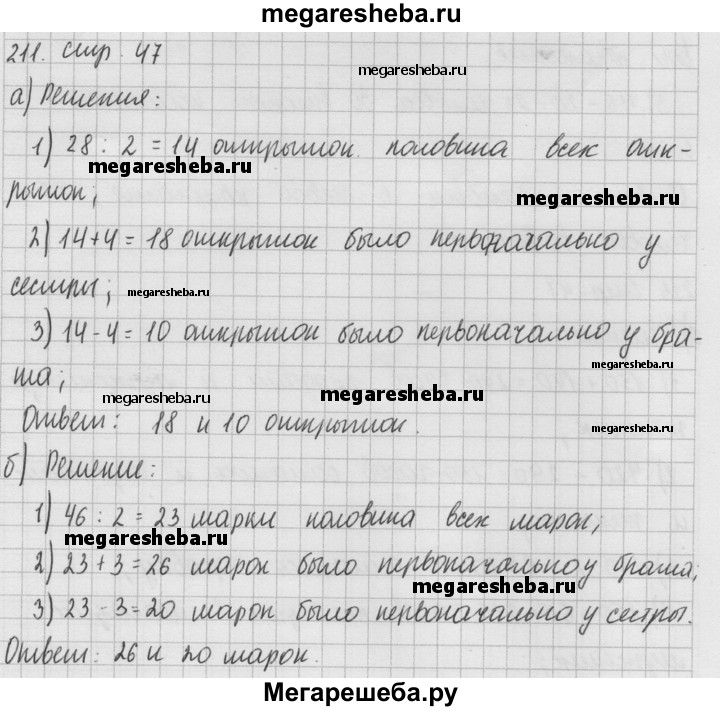 megaresheba.ru
211. стр. 47
megaresheba.ru
а) Решения:
1) 28 : 2 = 14 открыток половина всех отк-
megaresheba.ru
рыток;
megaresheba.ru
2) 14+4 = 18 открыток было первоначально у
сестры;
megaresheba.ru
3) 14-4 = 10 открыток было первоначально у бра-
megaresheba.ru
та;
megaresheba.ru
megaresheba.ru
Ответ: 18 и 10 открыток.
б) Решение:
1) 46 : 2 = 23 марки половина всех марок;
megaresheba.ru
2) 23+3=26 марок было первоначально у брата;
megaresheba.ru
3) 23-3=20 марок было первоначально у сестры.
Ответ: 26 и 20 марок.
Мегарешеба.ру